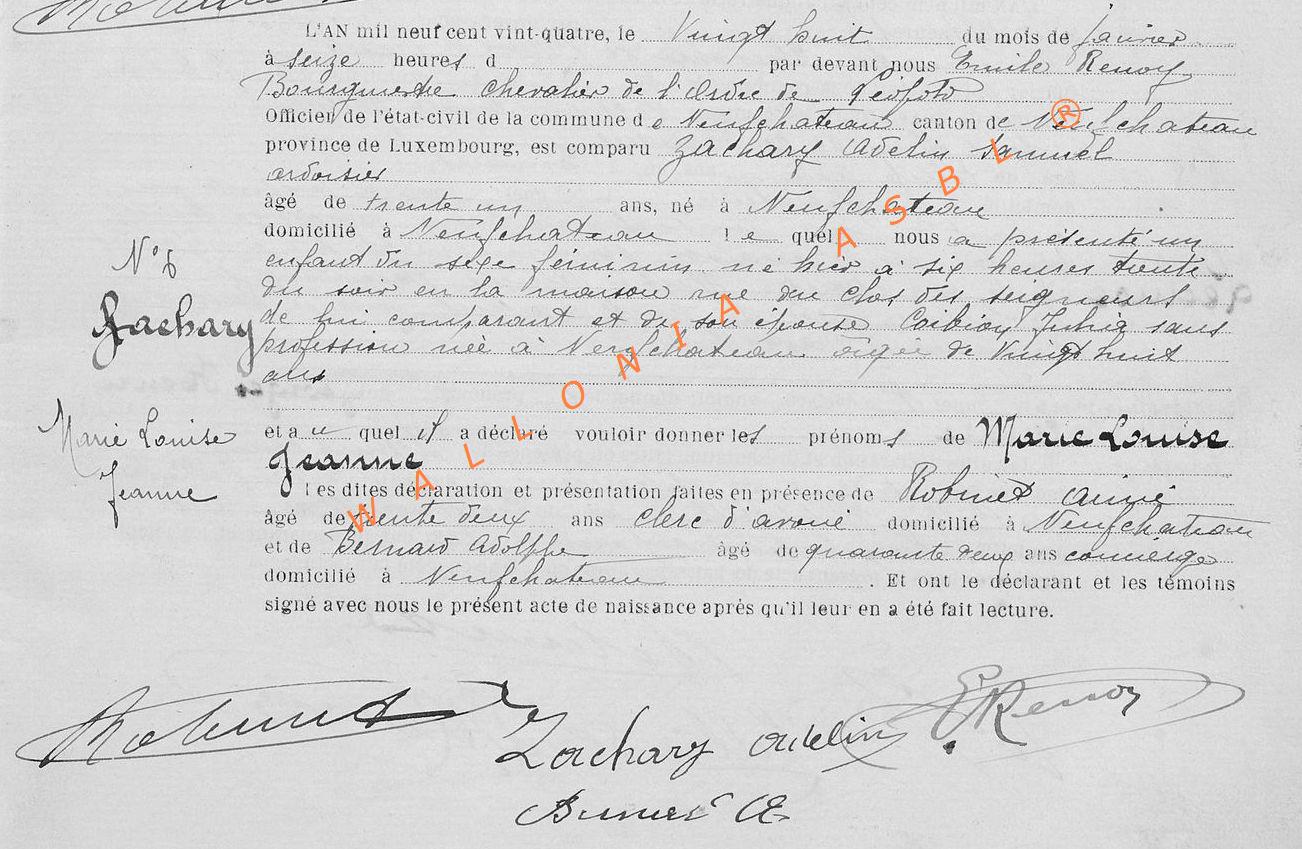 L'AN mil neuf cent vint-quatre, le Vingt huit du mois de janvier
à seize heures d par devant nous Emile Renoy
Bourgmestre Chevalier de l'ordre de Léopold
Officier de l'état-civil de la commune de Neufchateau canton de Neufchateau
province de Luxembourg, est comparu Zachary Adelin Samuel
ardoisier
âgé de trente un ans, né à Neufchateau
domicilié à Neufchateau le quel nous a présenté un
N° 6
enfant du sexe féminin né hier à six heures trente
du soir en la maison rue du clos des seigneurs
Zachary
de lui comparant et de son épouse Julia sans
profession née à Neufchateau âgée de Vingt huit
ans
Marie Louise
Jeanne
et au quel il a déclaré vouloir donner les prénoms de Marie Louise
Jeanne
Les dites déclaration et présentation faites en présence de Robinet Aimé
âgé de trente deux ans clerc d'avoué domicilié à Neufchateau
et de Bernard Adolphe âgé de quarante deux ans concierge
domicilié à Neufchateau . Et ont le déclarant et les témoins
signé avec nous le présent acte de naissance après qu'il leur en a été fait lecture.
WALLONIA ASBL ®
Robinet
ERenoy
Zachary Adelin